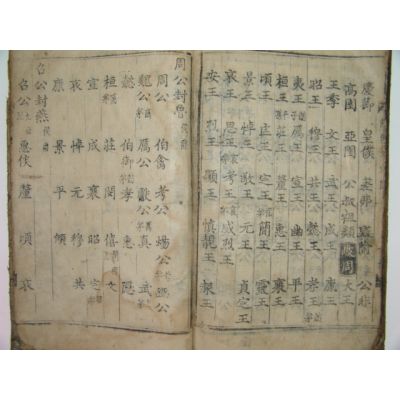 慶節 皇僕 差弗 公非
高圉 亞圉 公叔祖類 大王
王季 文王 武王 成王 康王
昭王 穆王 共王 孝王
夷王 厲王 宣王 幽王 平王
桓王 莊王 釐王 惠王 襄王
頃王 匡王 定王 簡王 靈王
景王 悼王 敬王 元王 貞定王
哀王 思王 考王 威烈王
安王 烈王 顯王 慎靚王 赧王
周公封魯 侯爵
周公 伯禽 考公 煬公 幽公
魏公 厲公 獻公 真 武
懿 伯御 孝 惠 隱
桓 莊 閔 僖 文
宣 成 襄 昭 定
哀 悼 元 穆 共
康 景 平 傾
召公封燕 侯爵
召公 惠侯 釐 頃 哀